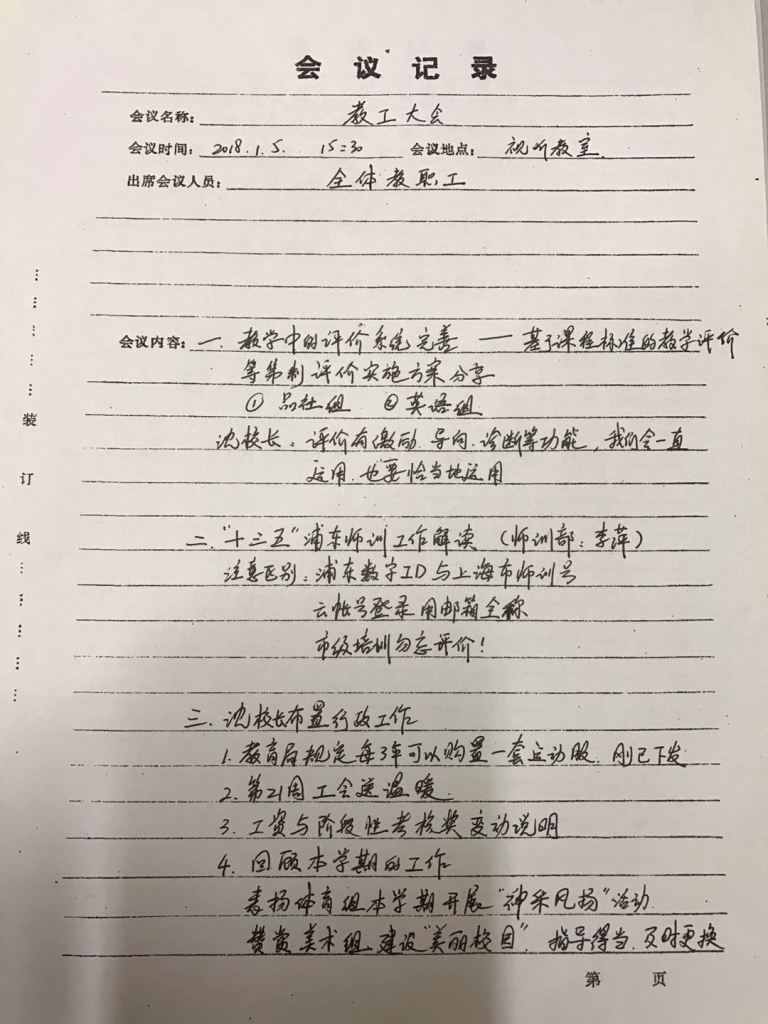 会议记录
会议名称: 教工大会
会议时间: 2018.1.5. 15:30 会议地点: 视听教室
出席会议人员: 全体教职工
会议内容: 一. 教学中的评价系统完善 — 基于课程标准的教学评价
等第制评价实施方案分享
① 品社组 ② 英语组
沈校长: 评价有激励.导向.诊断等功能,我们会一直
运用.也要恰当地运用
二. "十三五"浦东师训工作解读 (师训部:李萍)
注意区别:浦东数字ID与上海市师训号
云帐号登录用邮箱全称
市级培训勿忘评价!
三. 沈校长布置行政工作
1. 教育局规定每3年可以购置一套运动服. 刚已下发
2. 第21周工会送温暖.
3. 工资与阶段性考核奖变动说明
4. 回顾本学期的工作
表扬体育组本学期开展"神采飞扬"活动.
赞赏美术组建设"美丽校园". 指导得当.及时更换
第 页
装
订
线